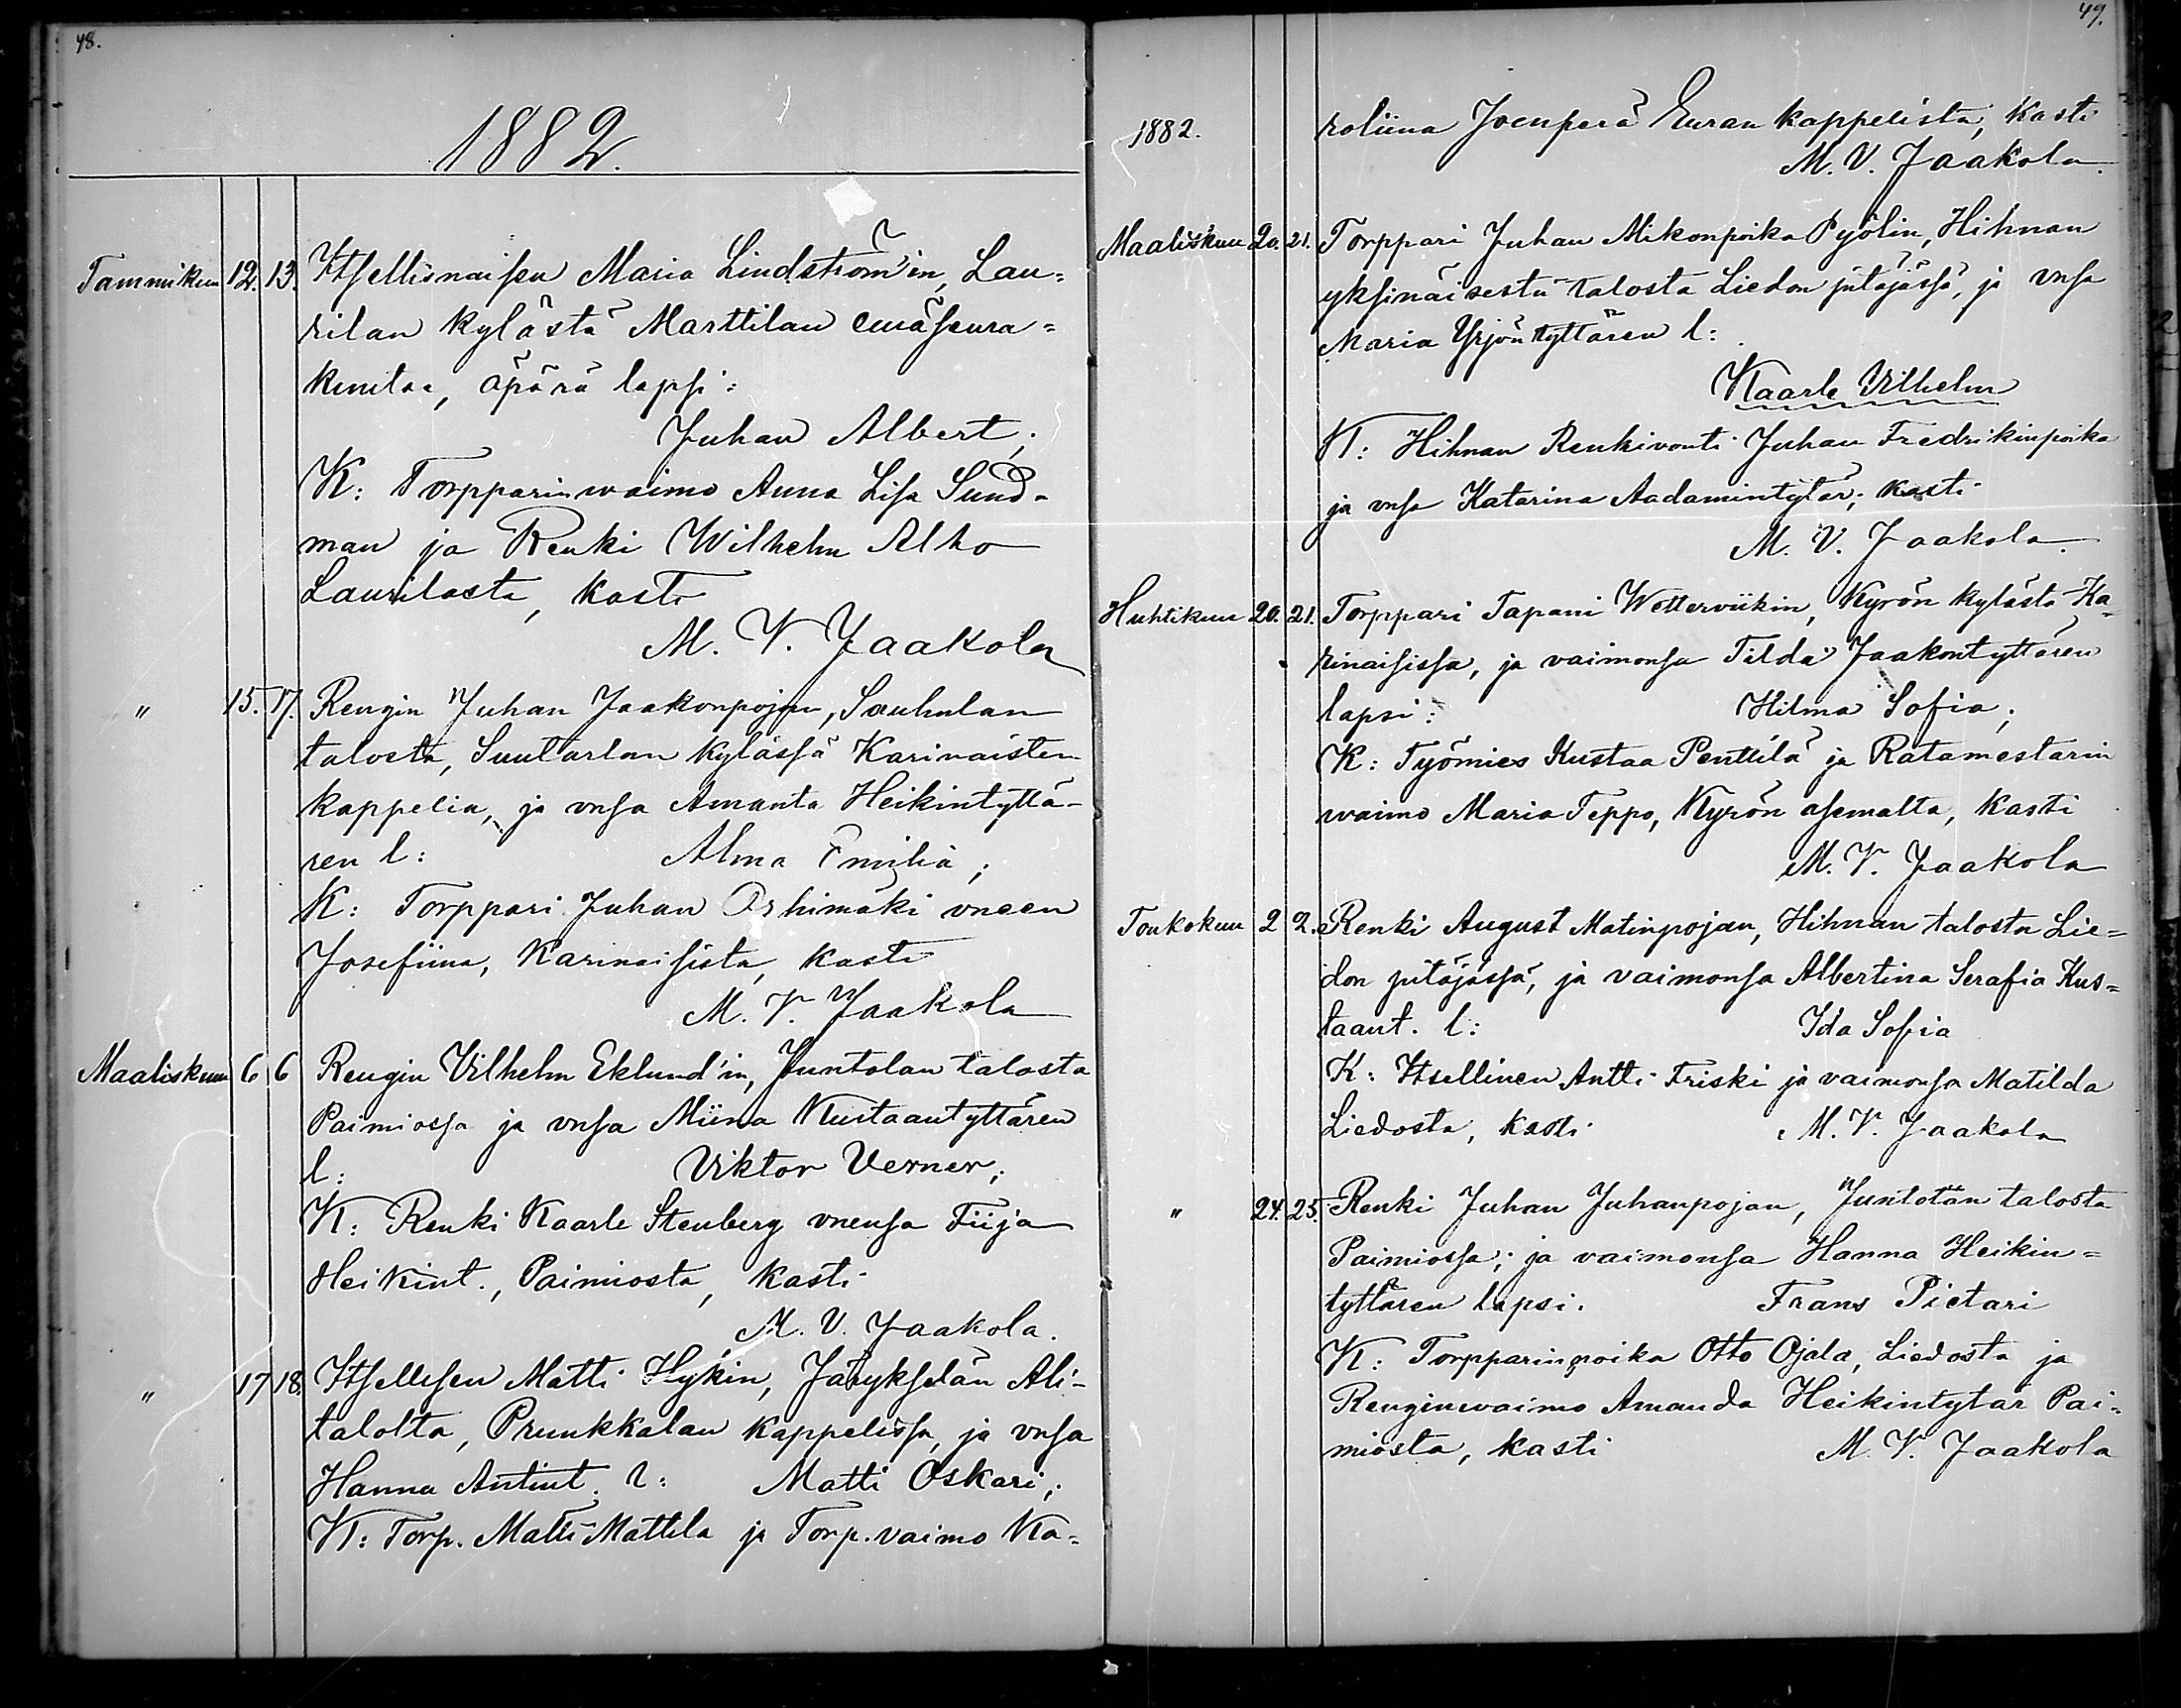 48.
1882.
Tammikuu 12. 13. Itsellisnaisen Maria Lindström'in, Lau=
rilan kylästä Marttilan emäseura=
kuntaa, äpärä lapsi:
Juhan Albert;
K: Torpparinwaimo Anna Lisa Sund-
man ja Renki Wilhelm Alho
Laurilasta, kasti
M. V. Jaakola
" 15. 17. Rengin Juhan Jaakonpojan, Sauhulan
talosta, Suutarlan kylässä Karinaisten
kappelia, ja vnsa Amanta Heikintyttä-
ren l: Alma Emilia;
K: Torppari Juhan Orhimäki vneen
Josefiina, Karinaisista, kasti
M. V. Jaakola
Maaliskuu 6 6 Rengin Vilhelm Eklund'in, Juntolan talosta
Paimiossa ja vnsa Miina Kustaantyttären
l: Viktor Verner;
K: Renki Kaarle Stenberg vnensa Fiija
Heikint., Paimiosta, kasti
M. V. Jaakola.
" 17 18. Itsellisen Matti Hykin, Järykselän Ali-
talolta, Prunkkalan kappelissa, ja vnsa
Hanna Antint. l: Matti Oskari;
K: Torp. Matti Mattila ja Torp. vaimo Ka=
49.
1882. roliina Joenperä Euran kappelista, kasti
M. V. Jaakola.
Maaliskuu 20. 21. Torppari Juhan Mikonpoika Pyölin, Hihnan
yksinäisestä talosta Liedon pitäjässä, ja vnsa
Maria Yrjöntyttären l:
Kaarle Vilhelm
K: Hihnan Renkivouti Juhan Fredrikinpoika
ja vnsa Katarina Aadamintytär; kasti
M. V. Jaakola.
Huhtikuu 20. 21. Torppari Tapani Wetterviikin, Kyrön kylästä Ka-
rinaisissa, ja vaimonsa Tilda Jaakontyttären
lapsi: Hilma Sofia;
K: Työmies Kustaa Penttilä ja Ratamestarin
waimo Maria Teppo, Kyrön asemalta, kasti
M. V. Jaakola
Toukokuu 2 2. Renki August Matinpojan, Hihnan talosta Lie=
don pitäjässä, ja vaimonsa Albertina Serafia Kus=
taant. l: Ida Sofia
K: Itsellinen Antti Friski ja vaimonsa Matilda
Liedosta, kasti M. V. Jaakola
" 24. 25. Renki Juhan Juhanpojan, Juntolan talosta
Paimiossa; ja vaimonsa Hanna Heikin=
tyttären lapsi. Frans Pietari
K: Torpparinpoika Otto Ojala, Liedosta ja
Renginwaimo Amanda Heikintytär Pai-
miosta, kasti M. V. Jaakola